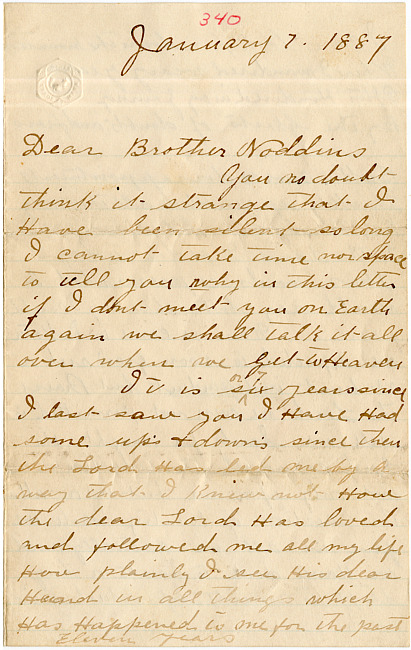 340
January 7. 1887
Dear Brother Noddins
You no doubt
think it strange that I
Have been silent so long
I cannot take time nor space
to tell you why in this letter
if I dont meet you on Earth
again we shall talk it all
over when we get to Heaven
It is six or 7 years since
I last saw you I Have Had
some ups & downs since then
the Lord Has led me by a
way that I knew not How
the dear Lord Has loved
and followed me all my life
How plainly I see His dear
Hand in all things which
Has Happened to me for the past
Eleven years